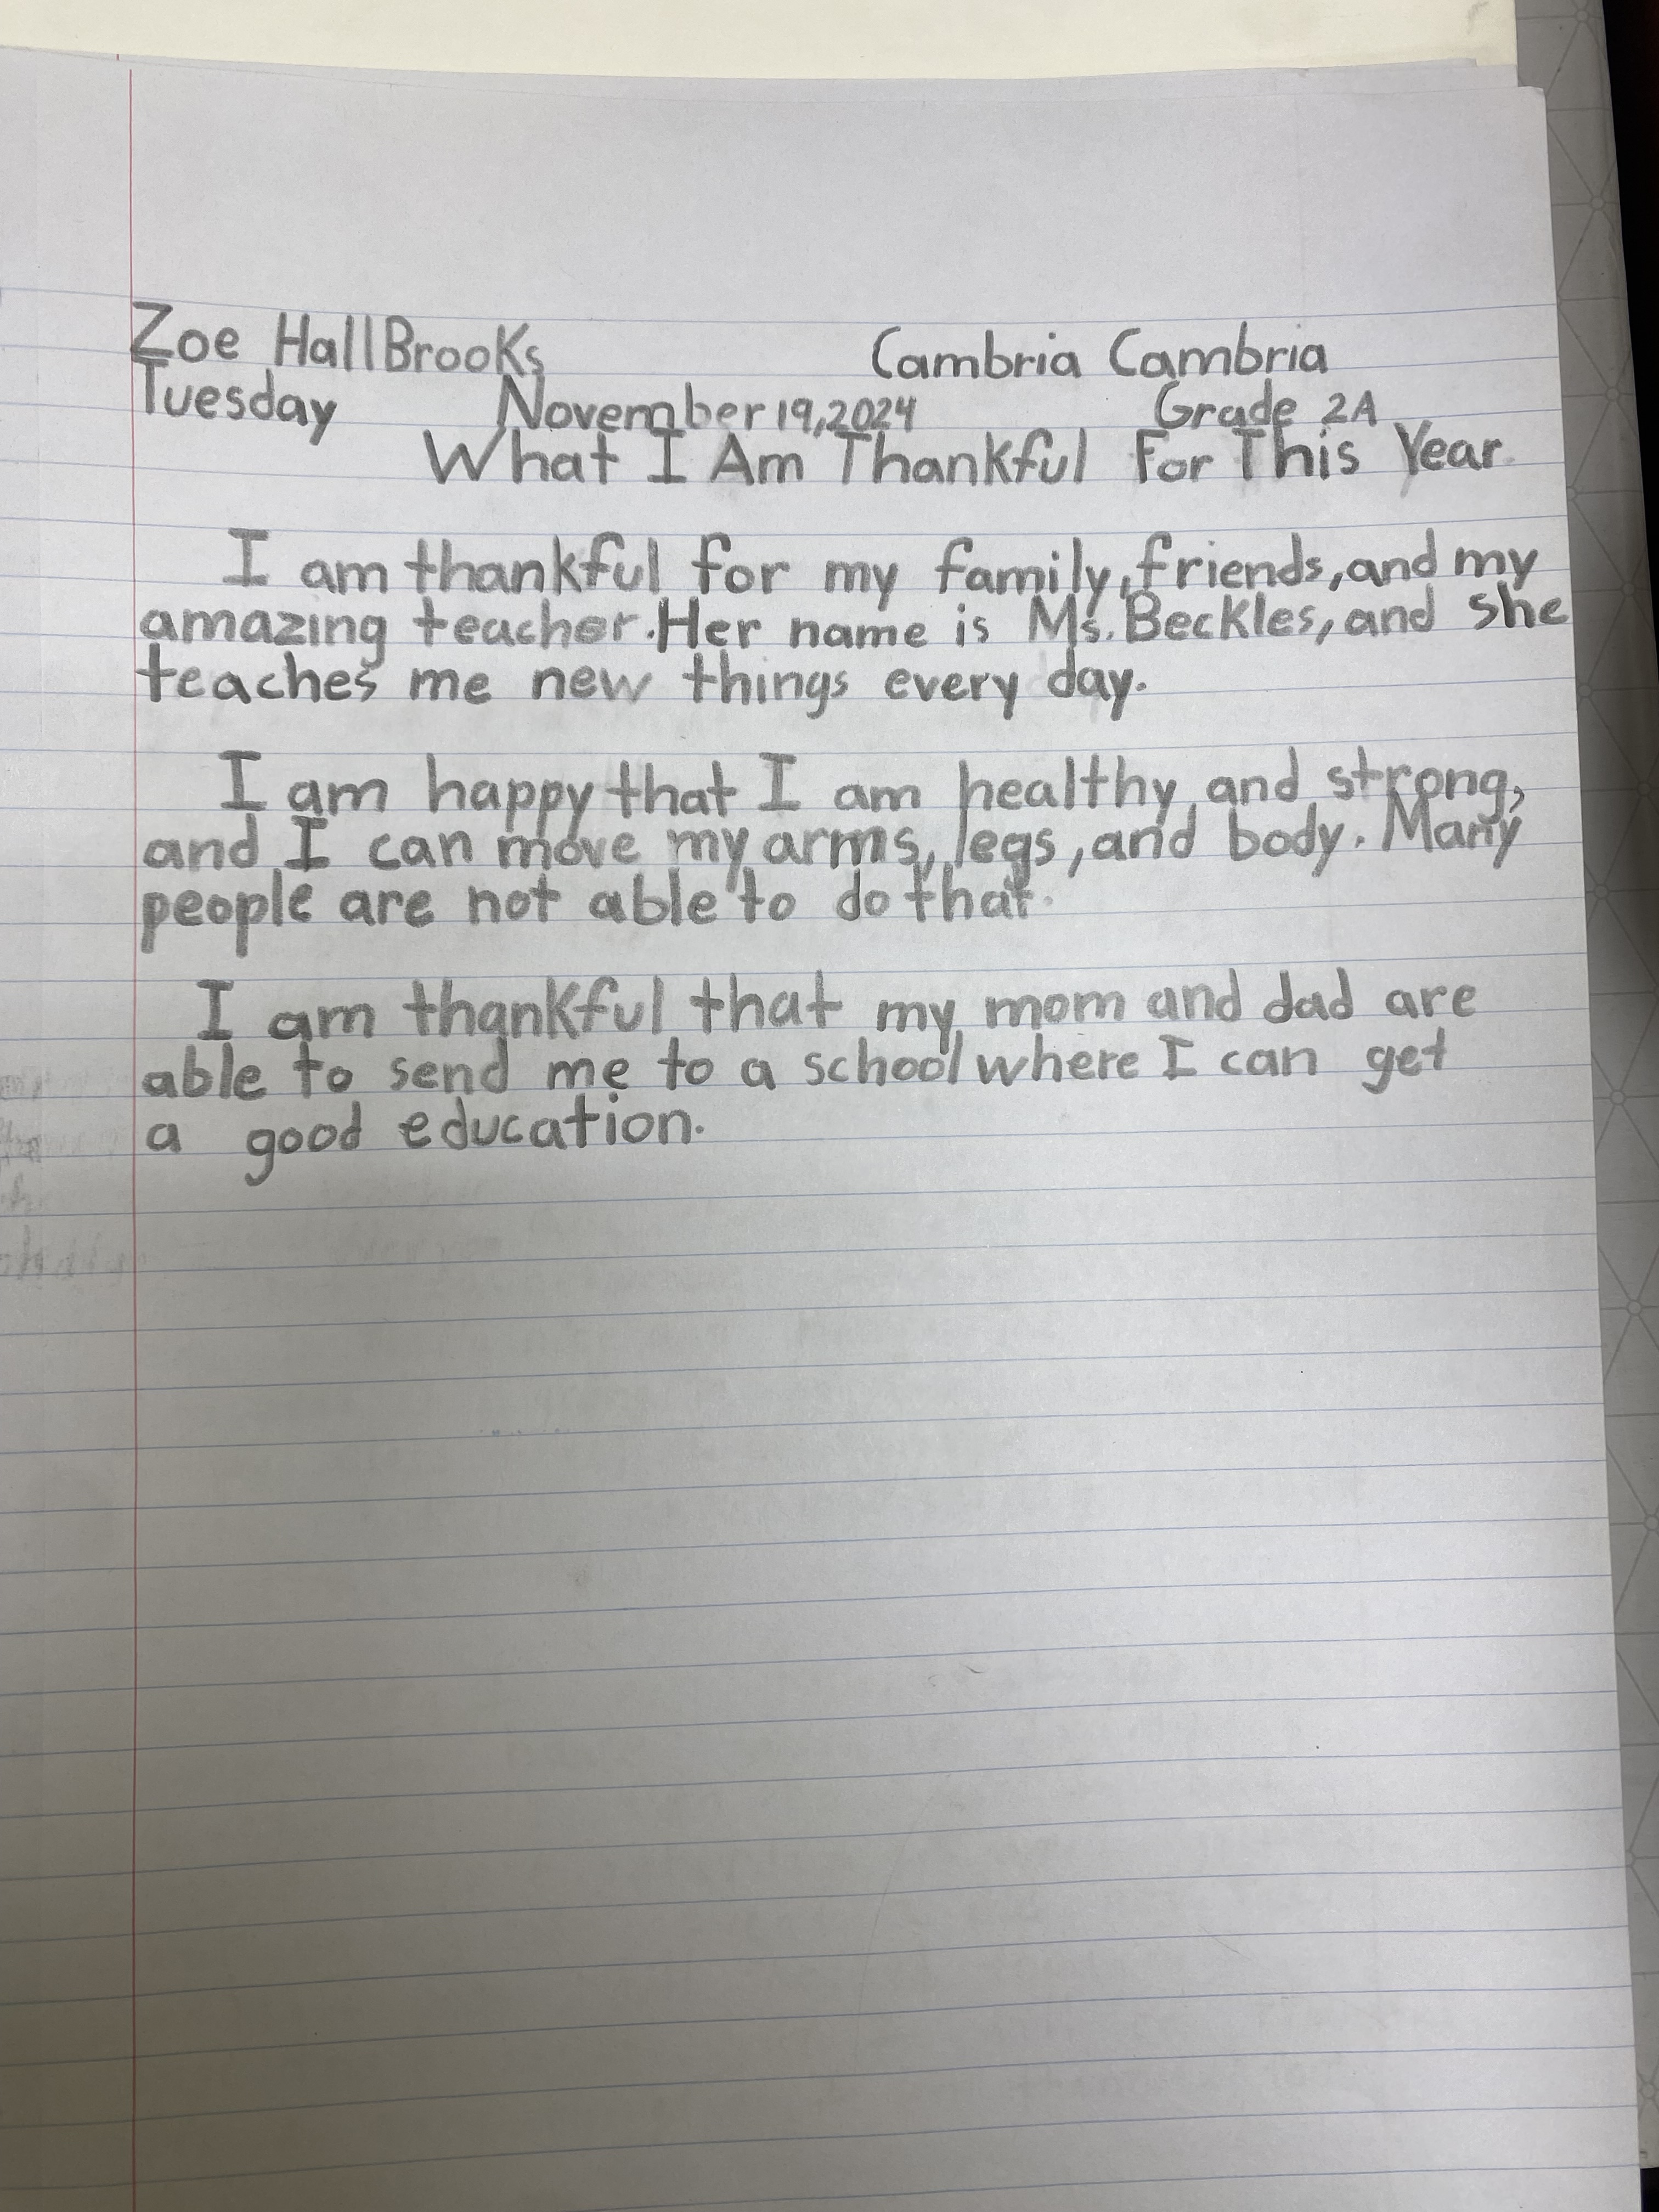 Zoe HallBrooks Cambria Cambria
Tuesday November 19,2024 Grade 2A
What I Am Thankful For This Year
I am thankful for my family, friends, and my
amazing teacher. Her name is Ms. Beckles, and she
teaches me new things every day.
I am happy that I am healthy and strong,
and I can move my arms, legs, and body. Many
people are not able to do that.
I am thankful that my mom and dad are
able to send me to a school where I can get
a good education.